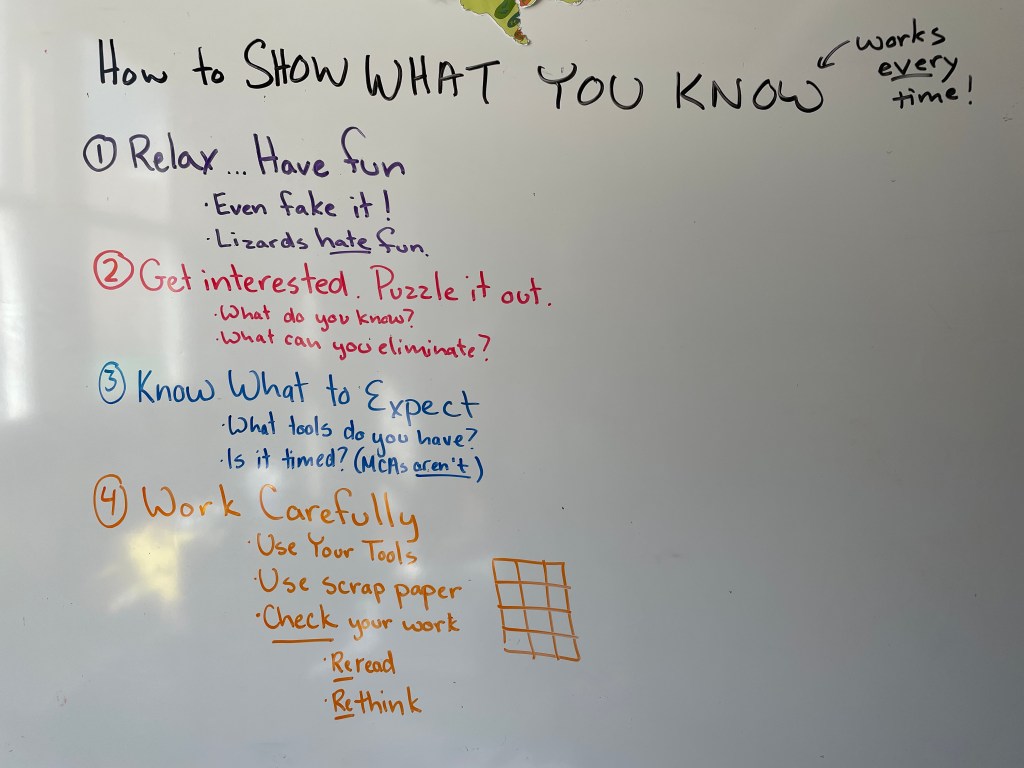 How to SHOW WHAT YOU KNOW
works
every
time!
① Relax... Have fun
· Even fake it!
· Lizards hate fun.
② Get interested. Puzzle it out.
· What do you know?
· What can you eliminate?
③ Know What to Expect
· What tools do you have?
· Is it timed? (MCAs aren't)
④ Work Carefully
· Use Your Tools
· Use scrap paper
· Check your work
· Reread
· Rethink